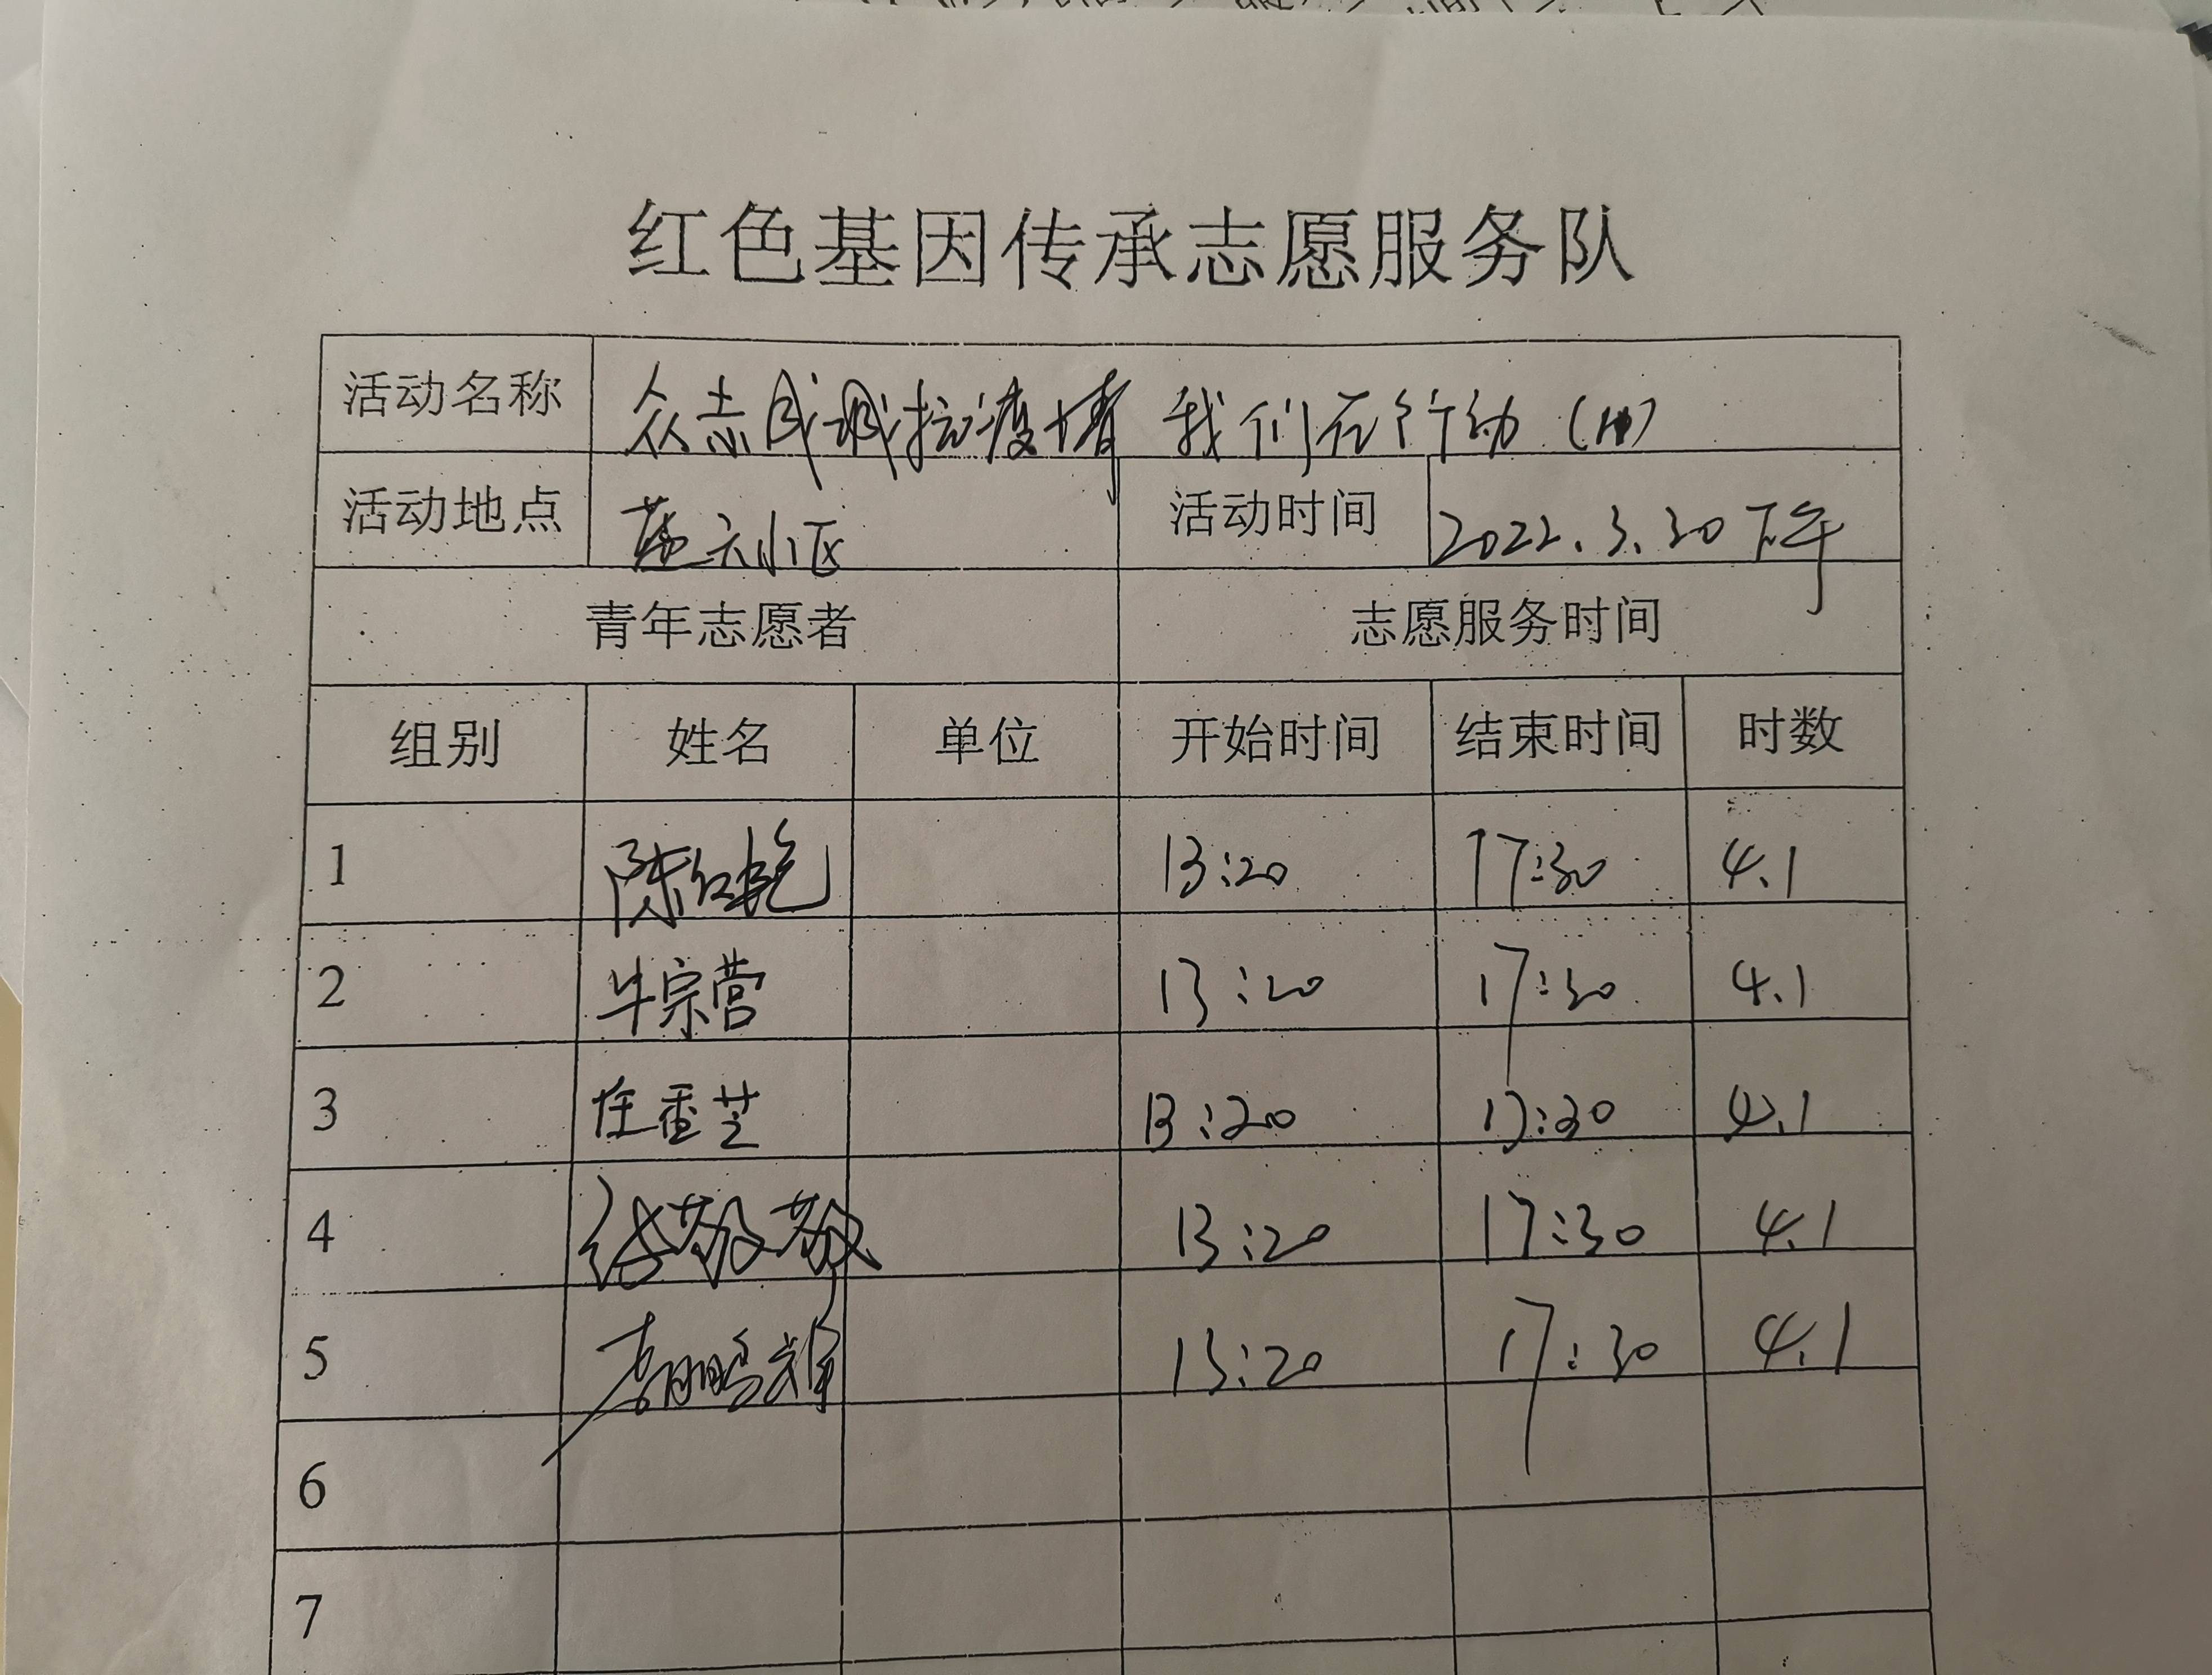 红色基因传承志愿服务队
活动名称 众志成城抗疫情 我们在行动
活动地点 小区 活动时间 2022.3.30下午
青年志愿者 志愿服务时间
组别 姓名 单位 开始时间 结束时间 时数
1 陈红艳 13:20 17:30 4.1
2 牛宗营 13:20 17:30 4.1
3 任香芝 13:20 17:30 4.1
4 13:20 17:30 4.1
5 李鹏辉 13:20 17:30 4.1
6
7